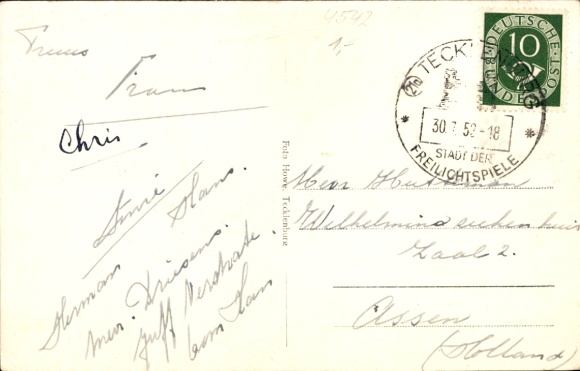 4542
1,-
Truus
Fran
Chris
Hans.
Herman
mevr. Driesens.
Juff Verstrate.
oom Han
Foto Howe, Tecklenburg
DEUTSCHE BUNDESPOST
10
(21a) TECKLENBURG
30.7.52-18
STADT DER
FREILICHTSPIELE
Heer
Wilhelmina ziekenhuis
Zaal 2.
Assen
(Holland)